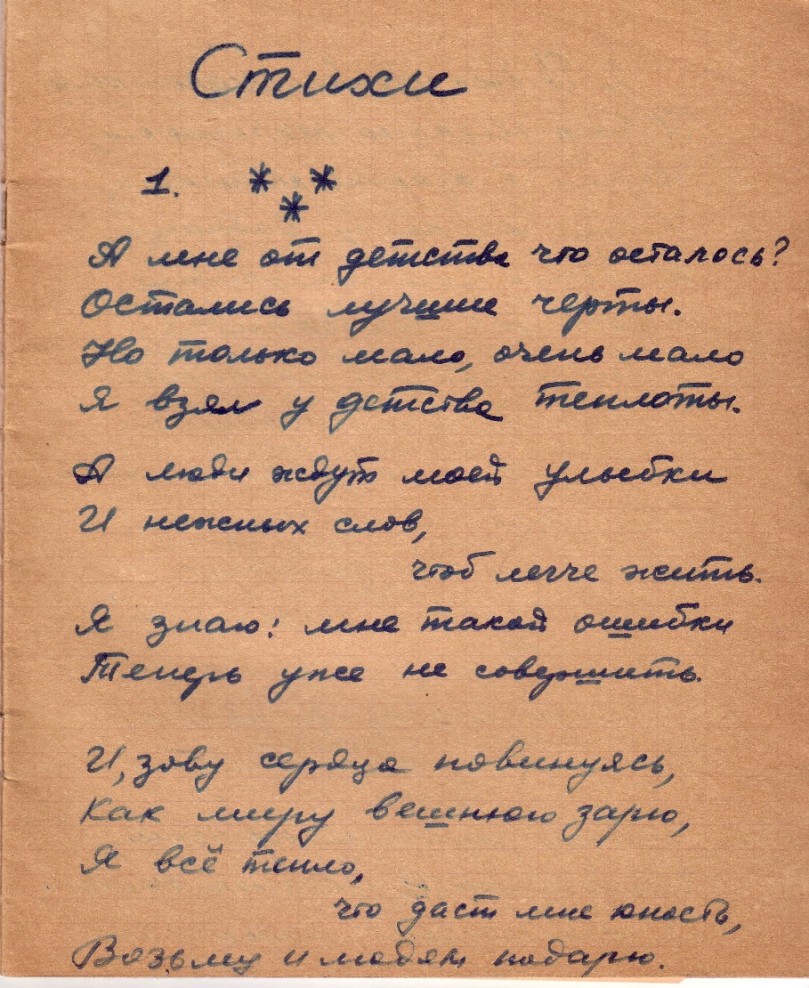 Стихи
1. * * *
А мне от детства что осталось?
Остались лучшие черты.
Но только мало, очень мало
Я взял у детства теплоты.
А люди ждут моей улыбки
И нежных слов,
чтоб легче жить.
Я знаю: мне такой ошибки
Теперь уже не совершить.
И, зову сердца повинуясь,
Как миру вешнюю зарю,
Я всё тепло,
что даст мне юность,
Возьму и людям подарю.